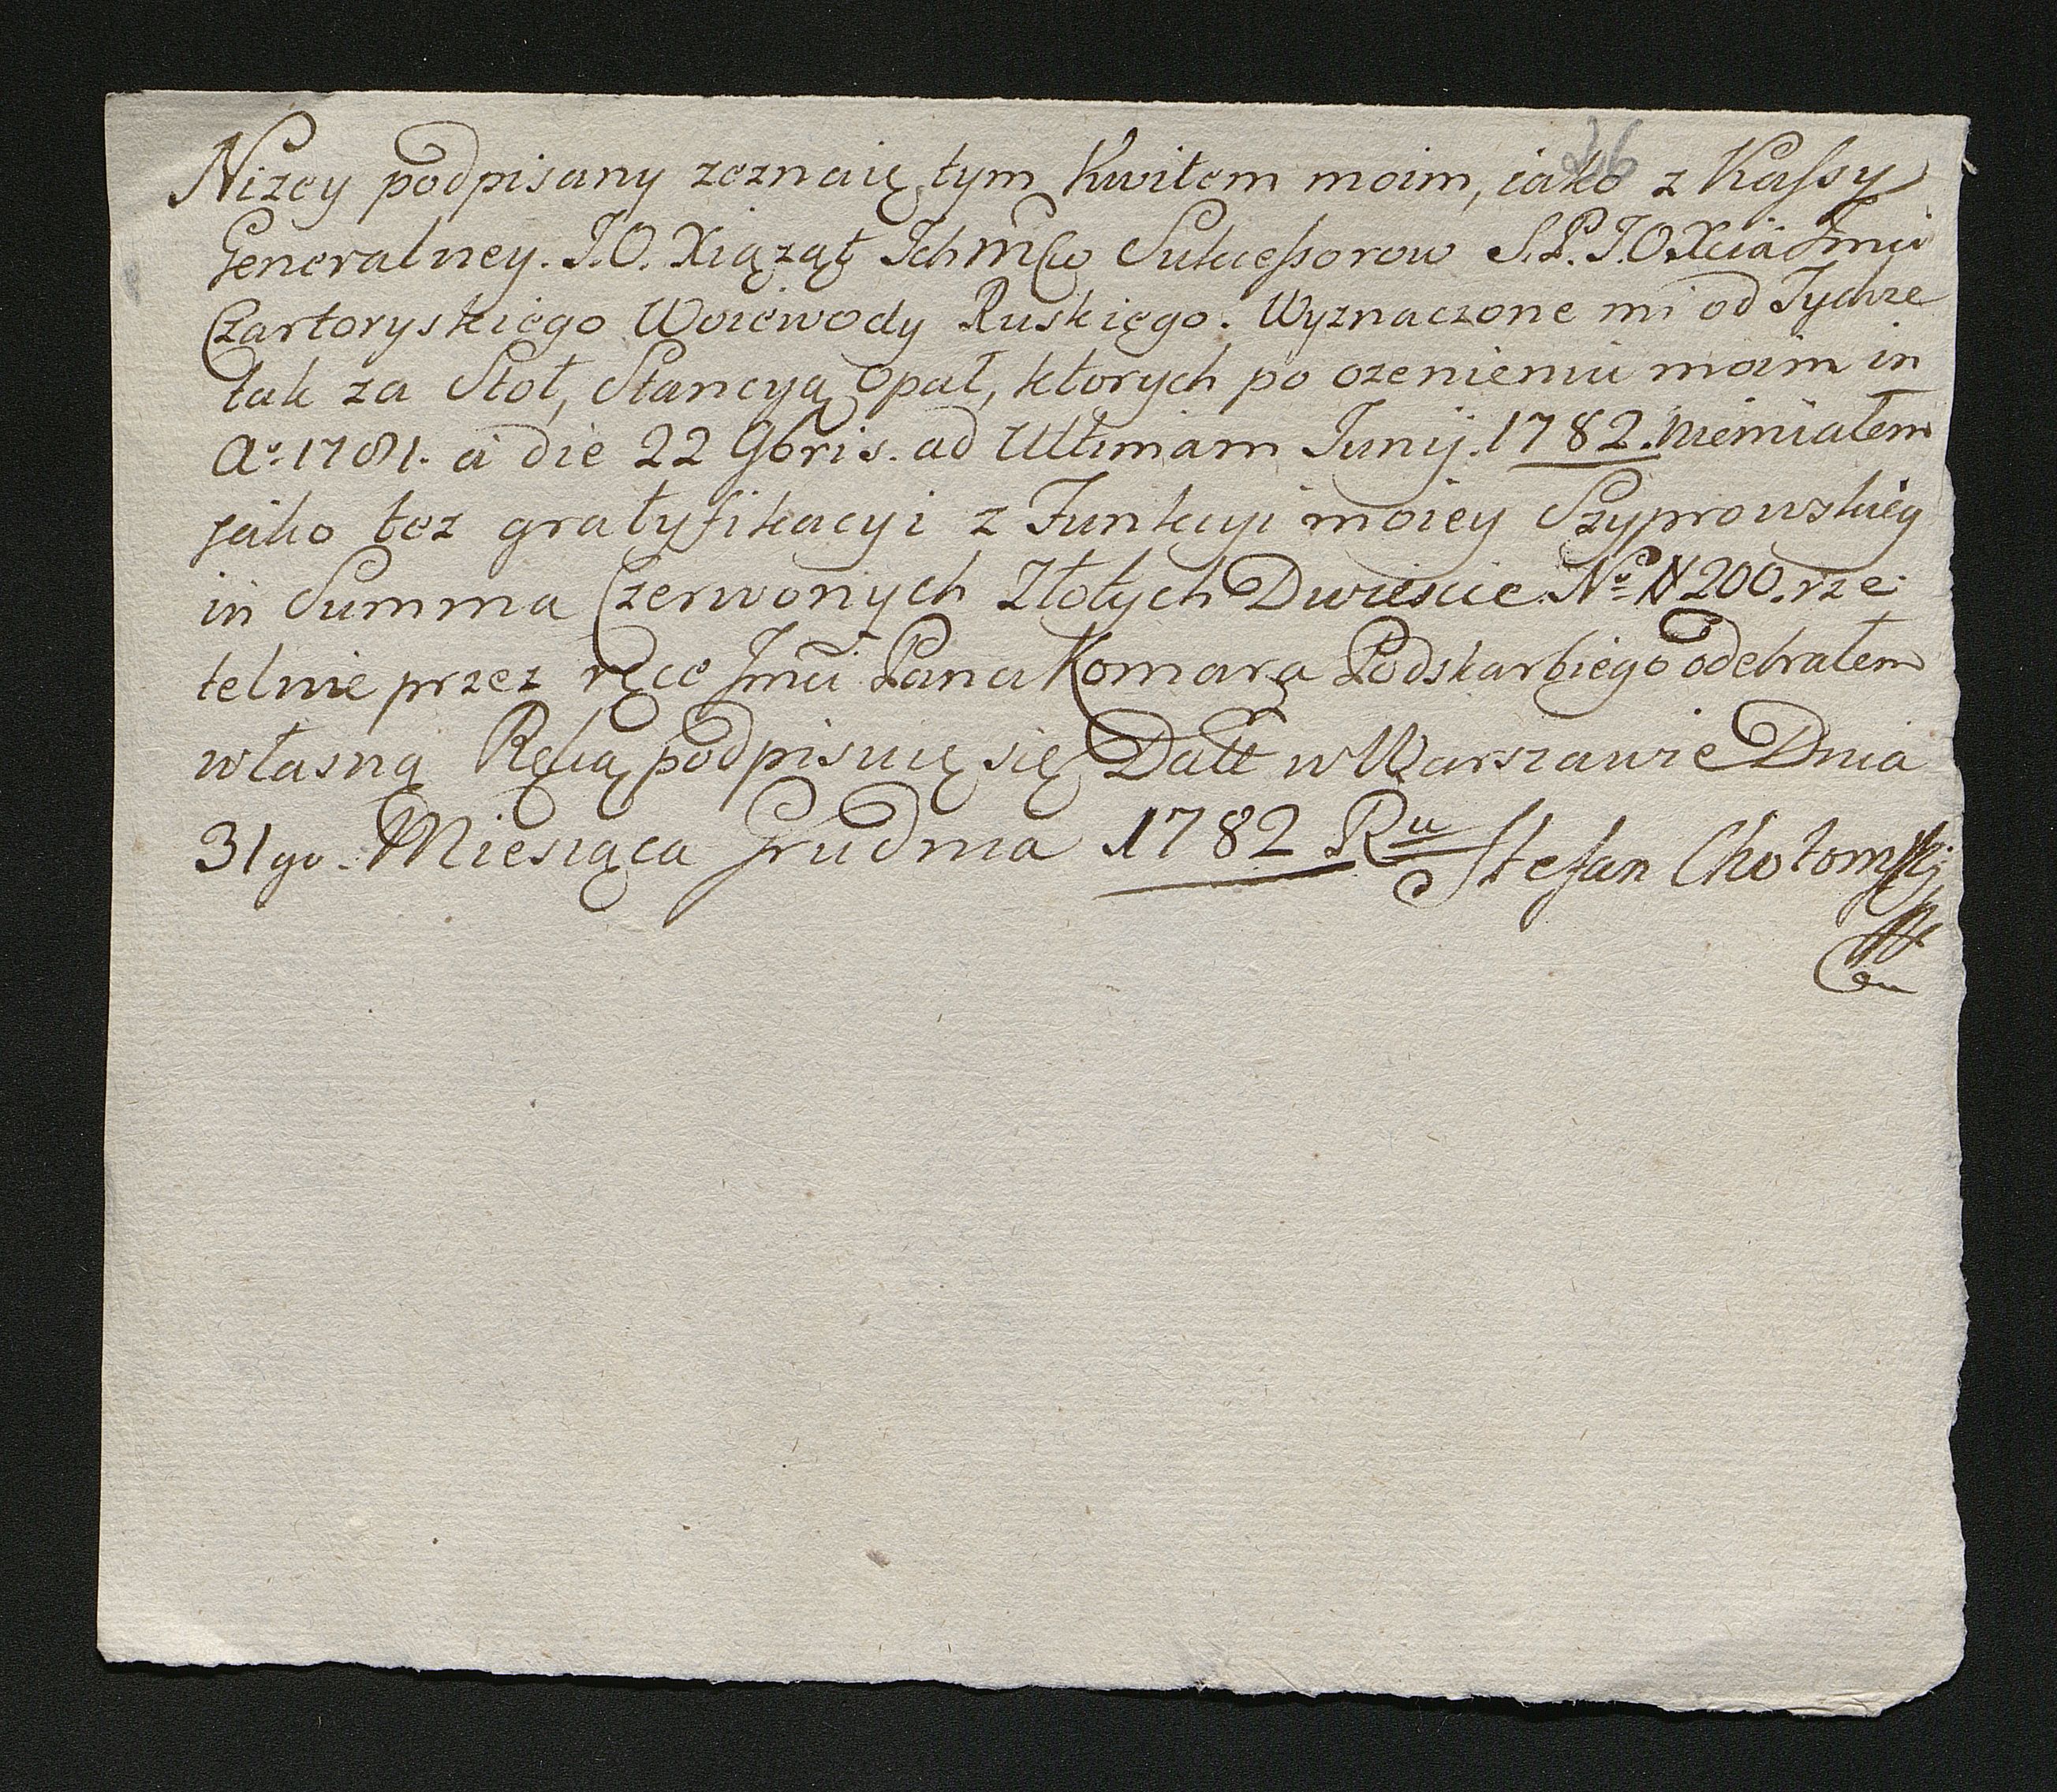 26
Nizey podpisany zeznaię tym Kwitem moim, iako z Kassy
Generalney. J.O. Xiążąt Ichmćw Sukcessorow S.P. J.O. Xcia Jmci
Czartoryskiego Woiewody Ruskięgo. Wyznaczone mi od Tychze
tak za Stoł, Stancyą Opał, ktorych po ozenieniu moim in
Aº 1781. a die 22 9bris. ad Ultimam Junij. 1782. niemiałem
jako tez gratyfikacyi z Funkcyi moiey Szyprowskiey
in Summa Czerwonych Złotych Dwieście Nº # 200. rze-
telnie przez ręce Jmci Pana Komara Podskarbiego odebrałem
własną Ręką podpisuię się Datt w Warszawie Dnia
31go. Miesiąca Grudnia 1782 Ru Stefan Chotomski